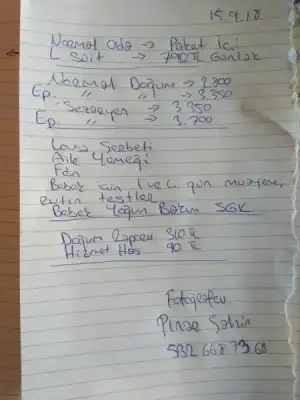 15.9.18
Normal Oda → Paket İçi
L Suit → 790 TL Günlük
Normal Doğum → 2.300
Ep. " " → 3.350
Sezaryen → 3.350
Ep. " → 3.700
Lousa Şerbeti
Aile Yemeği
Fön
Bebek için 1 ve 2. gün muayene,
rutin testler
Bebek Yoğun Bakım SGK
Doğum Raporu 310 TL
Hizmet Has 90 TL
Fotoğrafçı
Pınar Şahin
532 668 79 60